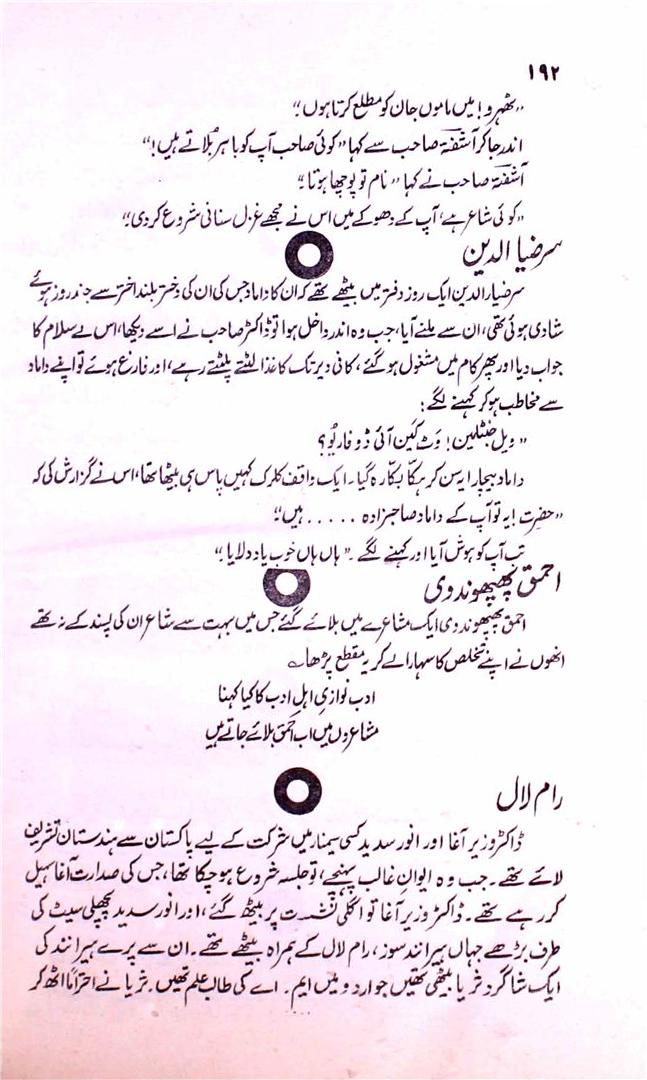 ۱۹۲
"ٹھہرو! میں ماموں جان کو مطلع کرتا ہوں!"
اندر جا کر آشفتہ صاحب سے کہا "کوئی صاحب آپ کو باہر بُلاتے ہیں!"
آشفتہ صاحب نے کہا "نام تو پوچھا ہوتا!"
"کوئی شاعر ہے، آپ کے دھوکے میں اس نے مجھے غزل سنانی شروع کردی!"
سر ضیا الدین
سر ضیار الدین ایک روز دفتر میں بیٹھے تھے کہ ان کا داماد جس کی ان کی دختر بلند اختر سے چند روز ہوئے
شادی ہوئی تھی، ان سے ملنے آیا، جب وہ اندر داخل ہوا تو ڈاکٹر صاحب نے اسے دیکھا، اس کے سلام کا
جواب دیا اور پھر کام میں مشغول ہو گئے، کافی دیر تک کاغذ الٹتے پلٹتے رہے، اور فارغ ہوئے تو اپنے داماد
سے مخاطب ہو کر کہنے لگے:
"ویل جنٹلمین! وٹ کین آئی ڈو فار یُو؟
داماد بیچارا یہ سن کر ہکّا بکّا رہ گیا۔ ایک واقف کلرک کہیں پاس ہی بیٹھا تھا، اس نے گزارش کی کہ
"حضرت! یہ تو آپ کے داماد صاحبزادہ ..... ہیں!"
تب آپ کو ہوش آیا اور کہنے لگے۔ "ہاں ہاں خوب یاد دلایا!"
احمق پھپھوندوی
احمق پھپھوندوی ایک مشاعرے میں بلائے گئے جس میں بہت سے شاعر ان کی پسند کے نہ تھے
انھوں نے اپنے تخلص کا سہارا لے کر یہ مقطع پڑھا؎
ادب نوازیِ اہلِ ادب کا کیا کہنا
مشاعروں میں اب احمق بلائے جاتے ہیں
رام لال
ڈاکٹر وزیر آغا اور انور سدید کسی سیمنار میں شرکت کے لیے پاکستان سے ہندستان تشریف
لائے تھے۔ جب وہ ایوانِ غالب پہنچے، تو جلسہ شروع ہو چکا تھا، جس کی صدارت آغا سہیل
کر رہے تھے۔ ڈاکٹر وزیر آغا تو اگلی نشست پر بیٹھ گئے، اور انور سدید پچھلی سیٹ کی
طرف بڑھے جہاں ہیرا نند سوز، رام لال کے ہمراہ بیٹھے تھے۔ ان سے پرے ہیرا نند کی
ایک شاگرد ثریا بیٹھی تھیں جو اردو میں ایم۔ اے کی طالب علم تھیں۔ ثریا نے احتراماً اٹھ کر